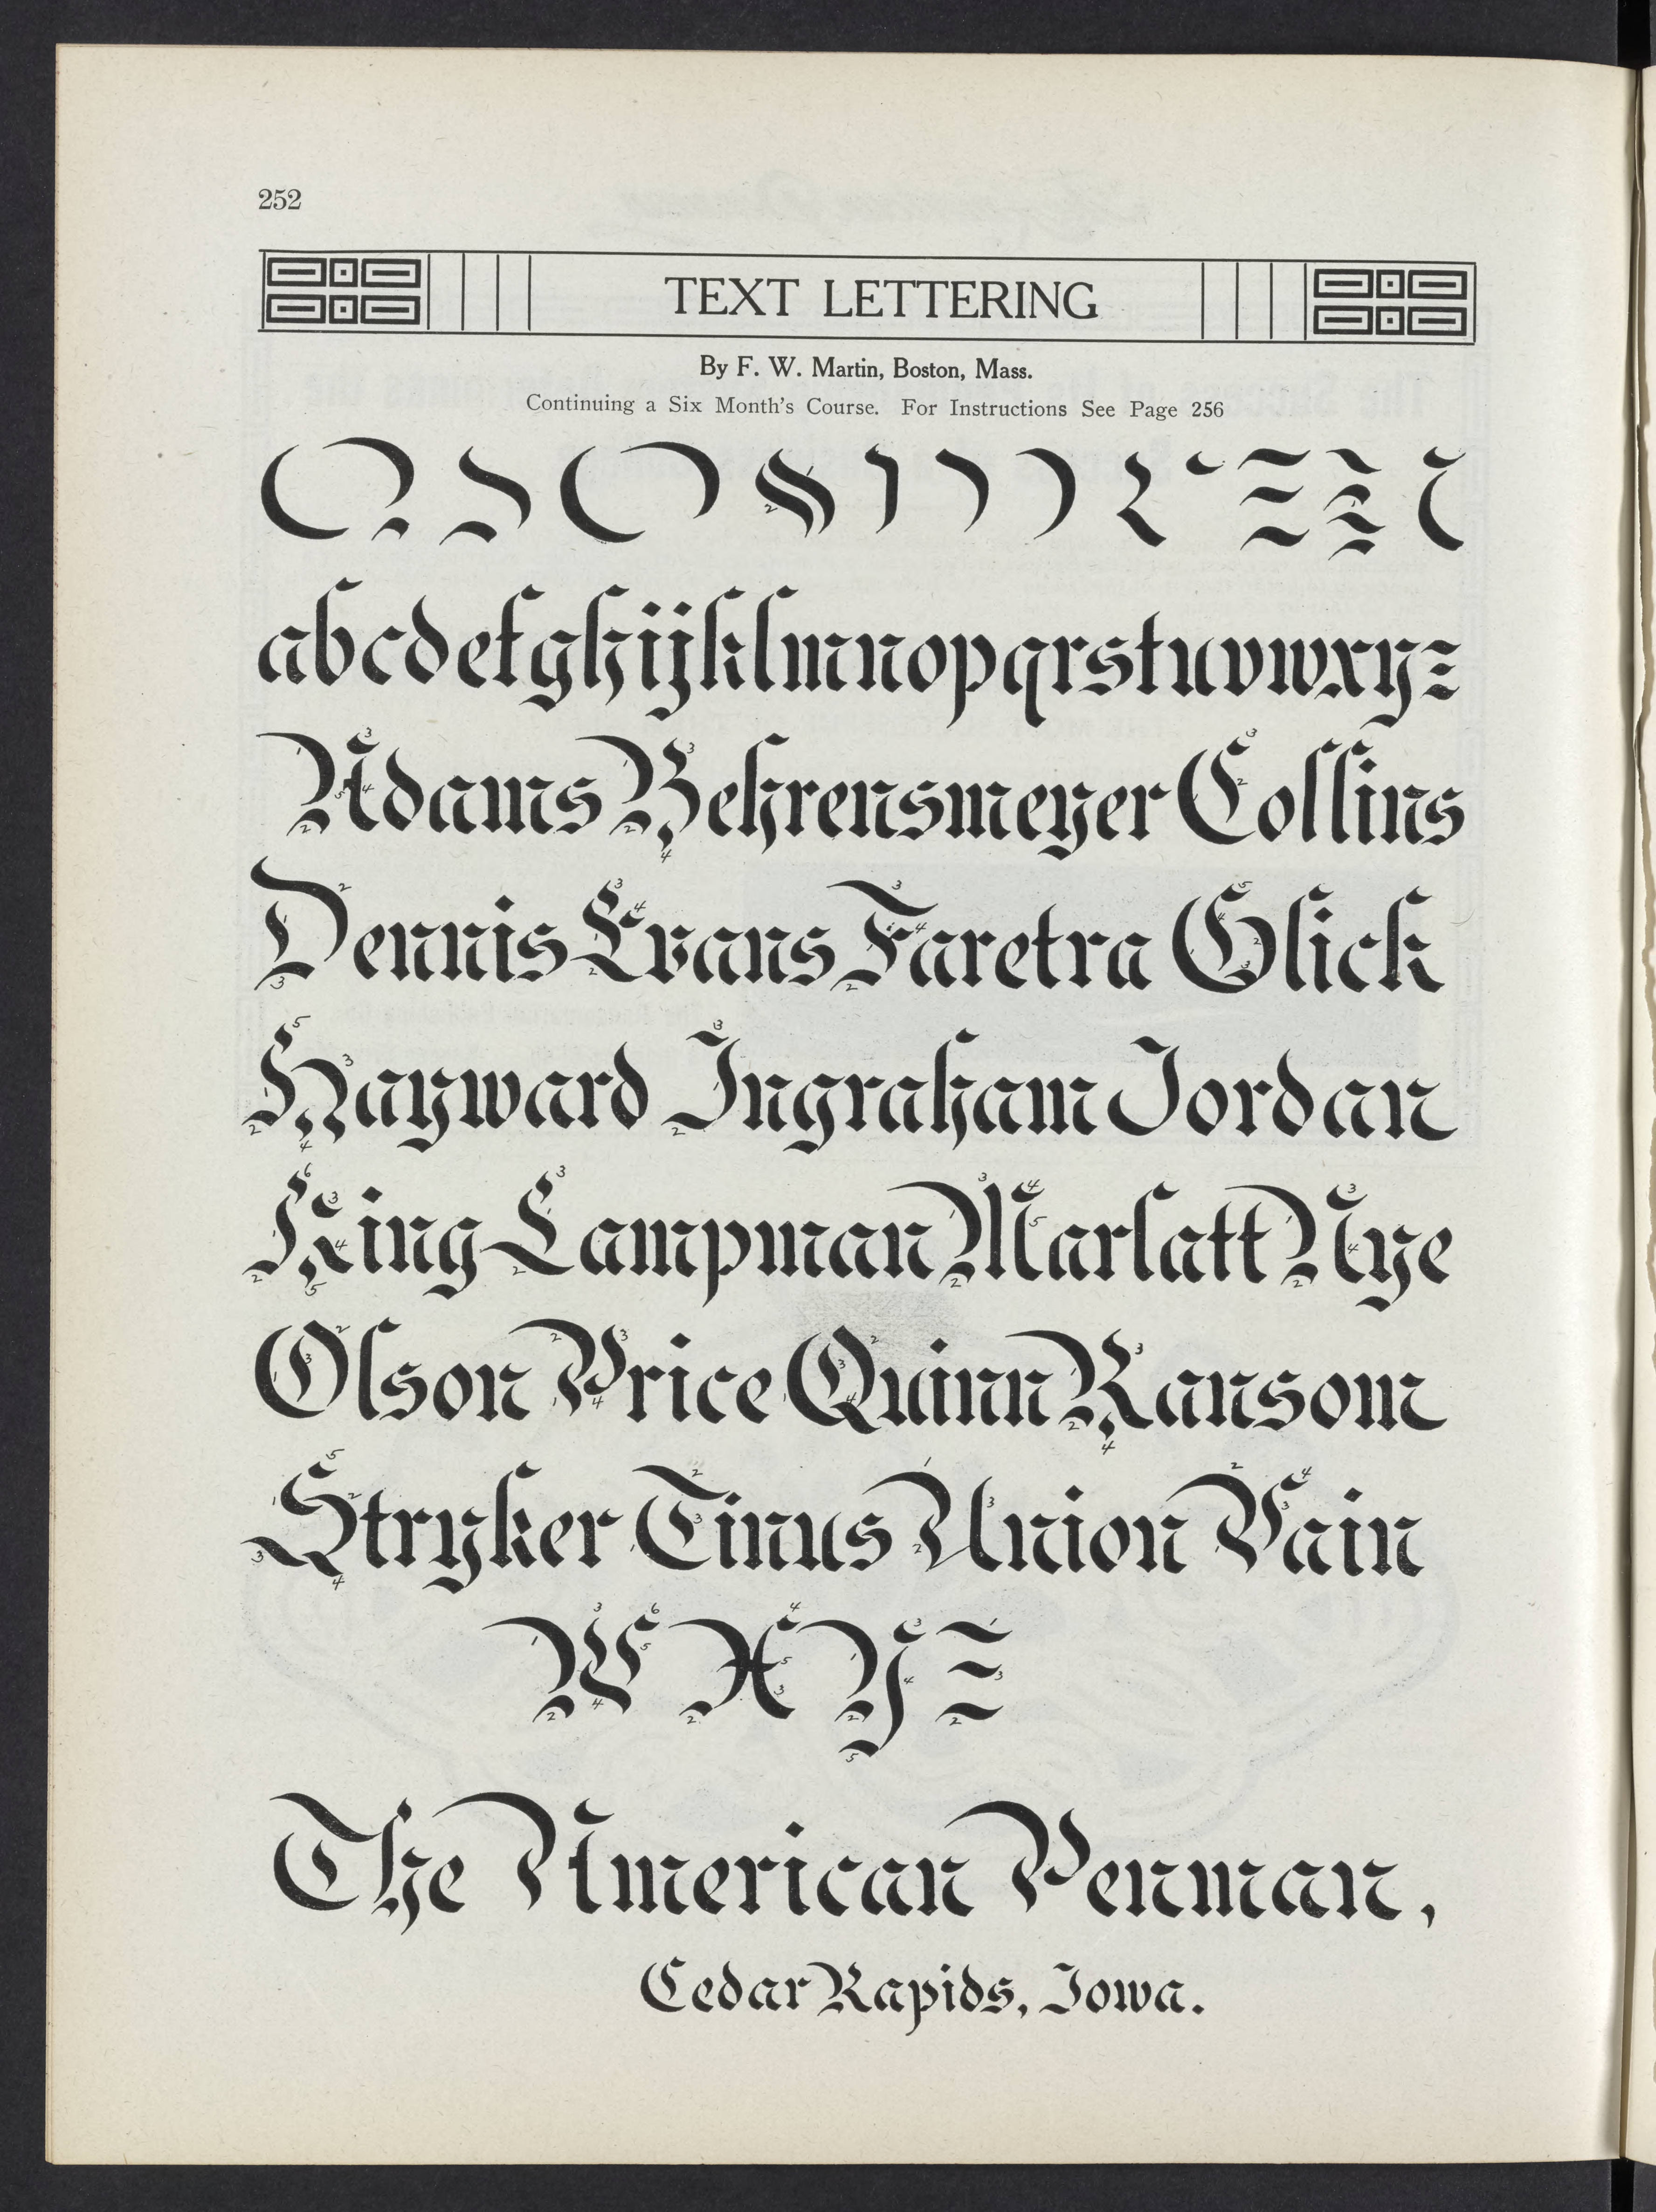 252
TEXT LETTERING
By F. W. Martin, Boston, Mass.
Continuing a Six Month's Course. For Instructions See Page 256
abcdefghijklmnopqrstuvwxyz
Adams Behrensmeyer Collins
Dennis Evans Faretra Glick
Hayward Ingraham Jordan
King Lampman Marlatt Nye
Olson Price Quinn Ransom
Stryker Tinus Union Vain
W X Y Z
The American Penman,
Cedar Rapids, Iowa.